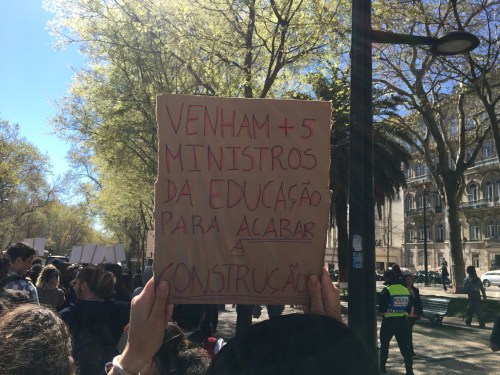 VENHAM + 5
MINISTROS
DA EDUCAÇÃO
PARA ACABAR
A
CONSTRUÇÃO